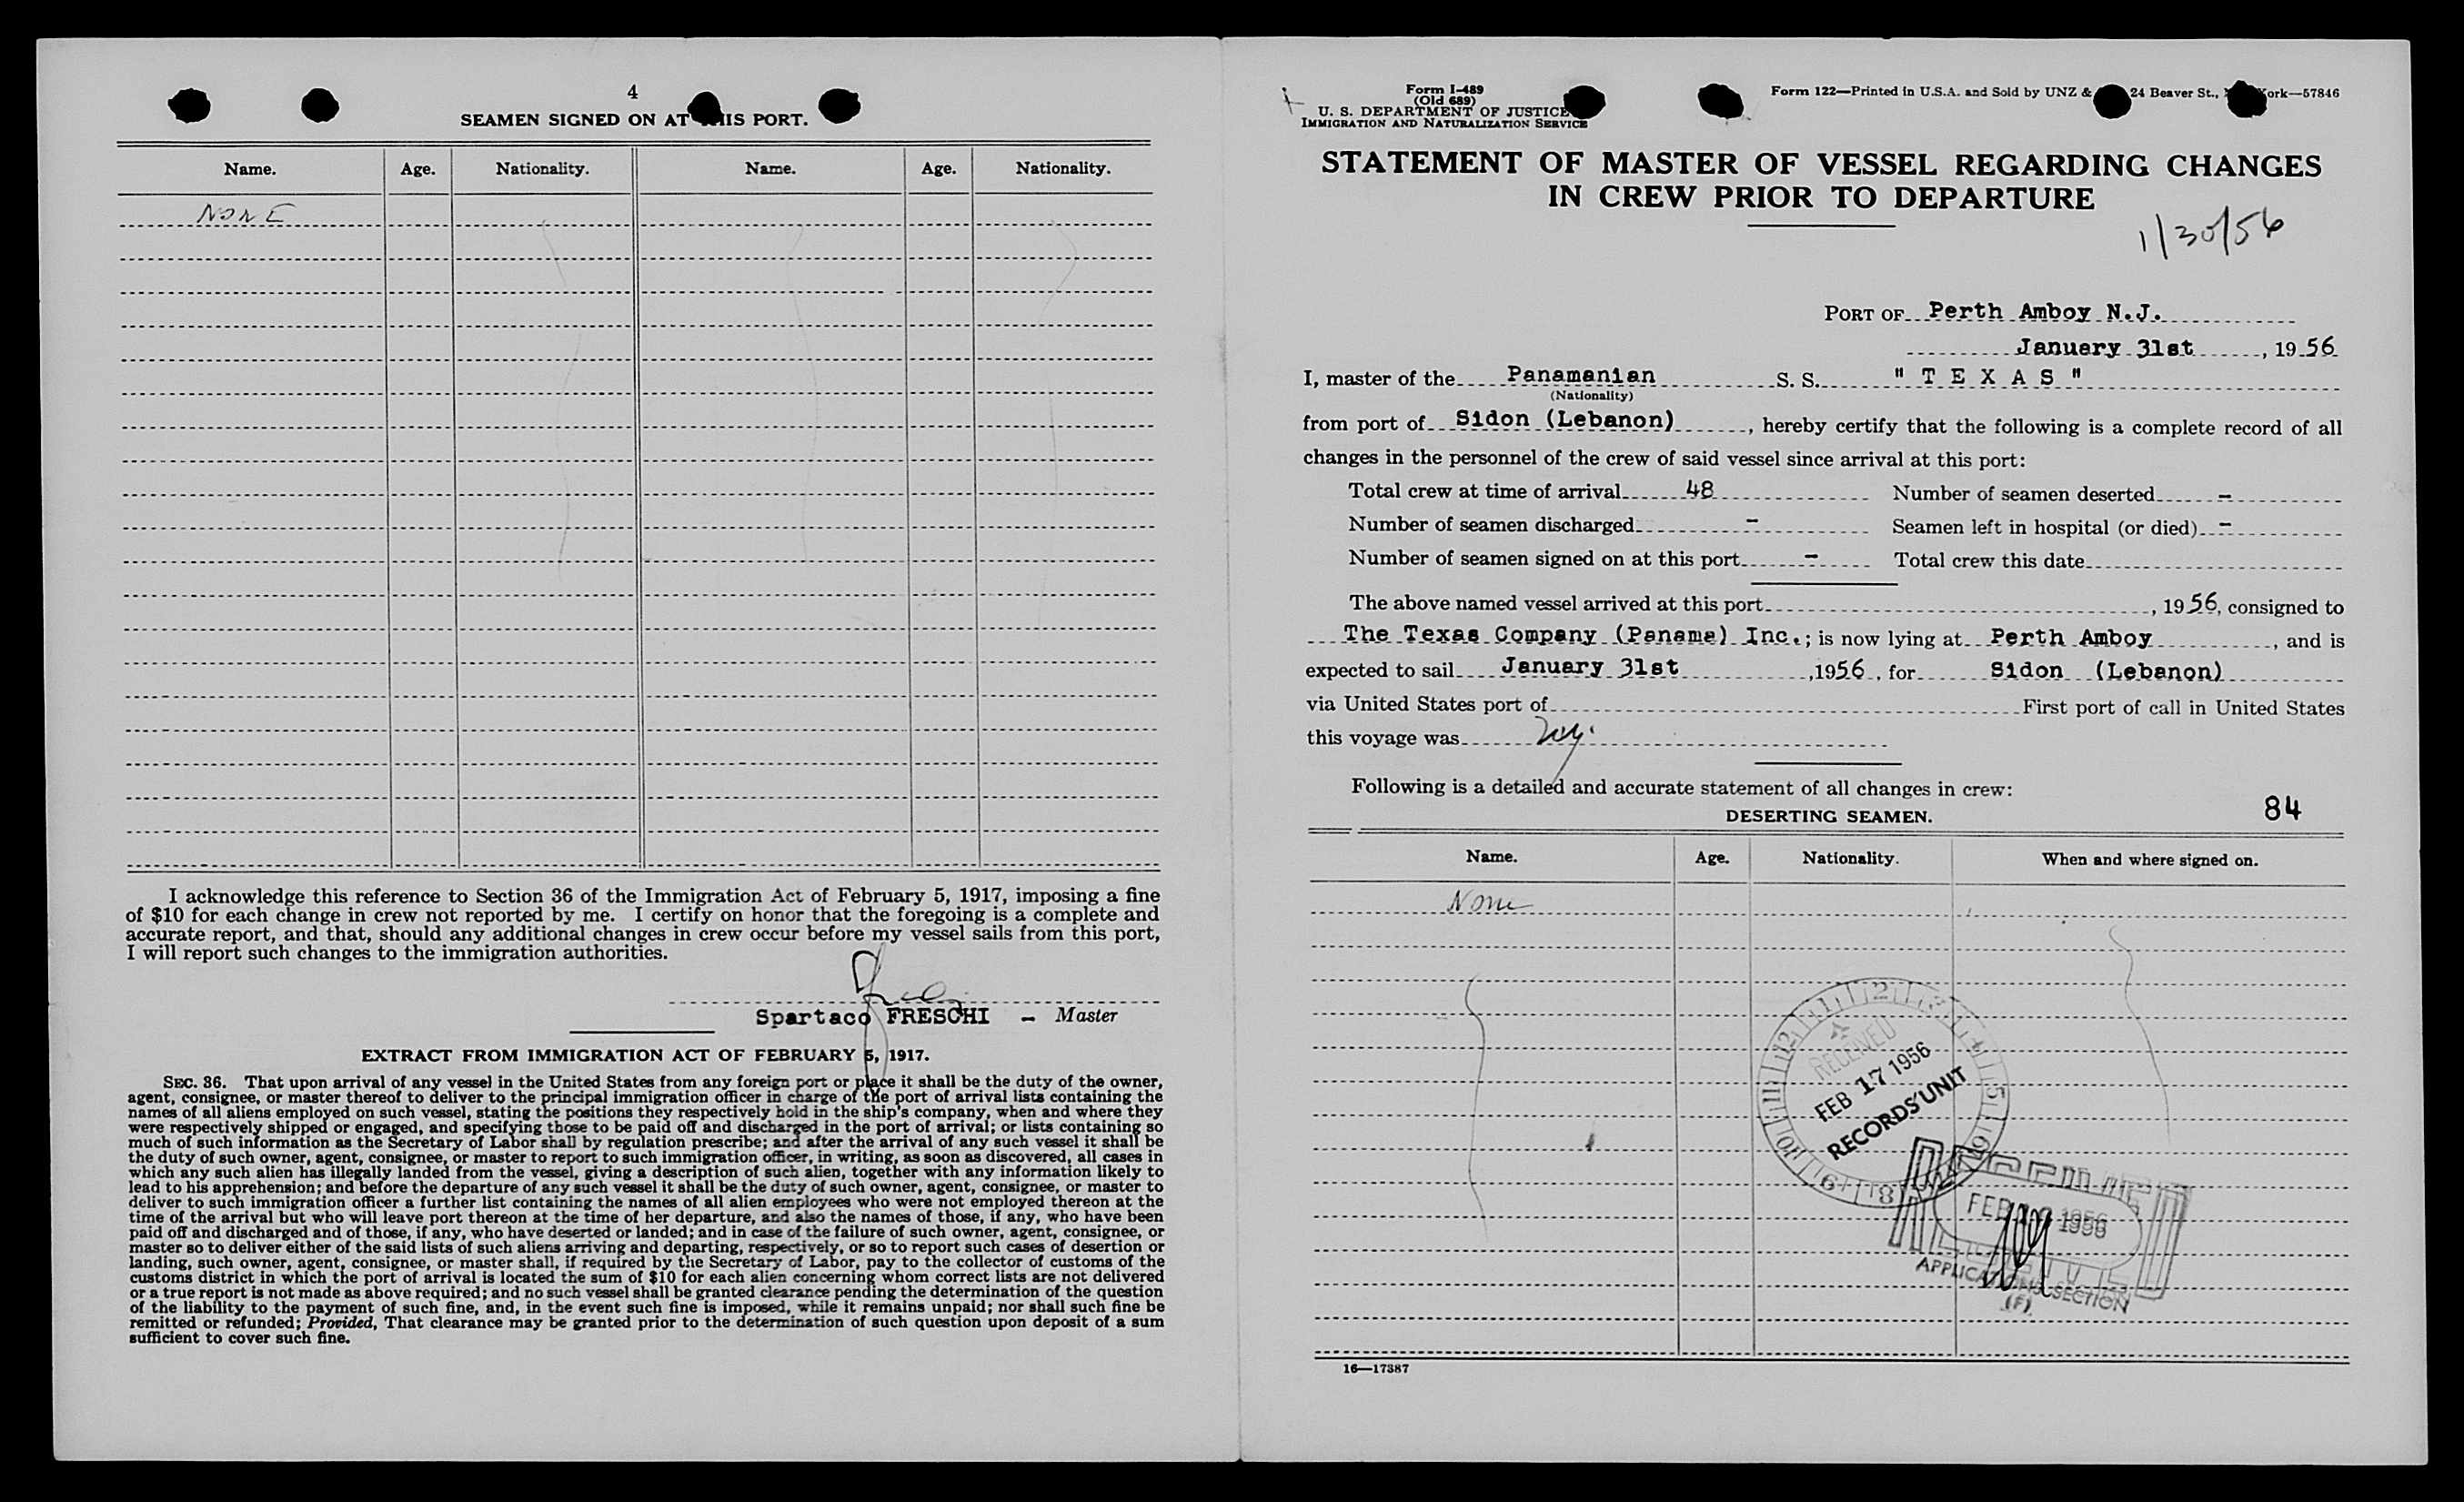 4
SEAMEN SIGNED ON AT THIS PORT.
Name. Age. Nationality. Name. Age. Nationality.
NONE
I acknowledge this reference to Section 36 of the Immigration Act of February 5, 1917, imposing a fine
of $10 for each change in crew not reported by me. I certify on honor that the foregoing is a complete and
accurate report, and that, should any additional changes in crew occur before my vessel sails from this port,
I will report such changes to the immigration authorities.
Spartaco FRESCHI - Master
EXTRACT FROM IMMIGRATION ACT OF FEBRUARY 5, 1917.
SEC. 36. That upon arrival of any vessel in the United States from any foreign port or place it shall be the duty of the owner,
agent, consignee, or master thereof to deliver to the principal immigration officer in charge of the port of arrival lists containing the
names of all aliens employed on such vessel, stating the positions they respectively hold in the ship's company, when and where they
were respectively shipped or engaged, and specifying those to be paid off and discharged in the port of arrival; or lists containing so
much of such information as the Secretary of Labor shall by regulation prescribe; and after the arrival of any such vessel it shall be
the duty of such owner, agent, consignee, or master to report to such immigration officer, in writing, as soon as discovered, all cases in
which any such alien has illegally landed from the vessel, giving a description of such alien, together with any information likely to
lead to his apprehension; and before the departure of any such vessel it shall be the duty of such owner, agent, consignee, or master to
deliver to such immigration officer a further list containing the names of all alien employees who were not employed thereon at the
time of the arrival but who will leave port thereon at the time of her departure, and also the names of those, if any, who have been
paid off and discharged and of those, if any, who have deserted or landed; and in case of the failure of such owner, agent, consignee, or
master so to deliver either of the said lists of such aliens arriving and departing, respectively, or so to report such cases of desertion or
landing, such owner, agent, consignee, or master shall, if required by the Secretary of Labor, pay to the collector of customs of the
customs district in which the port of arrival is located the sum of $10 for each alien concerning whom correct lists are not delivered
or a true report is not made as above required; and no such vessel shall be granted clearance pending the determination of the question
of the liability to the payment of such fine, and, in the event such fine is imposed, while it remains unpaid; nor shall such fine be
remitted or refunded; Provided, That clearance may be granted prior to the determination of such question upon deposit of a sum
sufficient to cover such fine.
Form I-489
(Old 689)
U. S. DEPARTMENT OF JUSTICE
IMMIGRATION AND NATURALIZATION SERVICE
Form 122—Printed in U.S.A. and Sold by UNZ & 24 Beaver St., York—57846
STATEMENT OF MASTER OF VESSEL REGARDING CHANGES
IN CREW PRIOR TO DEPARTURE
1/30/56
PORT OF Perth Amboy N.J.
January 31st, 1956
I, master of the Panamanian S. S. " T E X A S "
(Nationality)
from port of Sidon (Lebanon), hereby certify that the following is a complete record of all
changes in the personnel of the crew of said vessel since arrival at this port:
Total crew at time of arrival 48 Number of seamen deserted -
Number of seamen discharged - Seamen left in hospital (or died) -
Number of seamen signed on at this port - Total crew this date
The above named vessel arrived at this port , 1956, consigned to
The Texas Company (Panama) Inc.; is now lying at Perth Amboy, and is
expected to sail January 31st, 1956, for Sidon (Lebanon)
via United States port of First port of call in United States
this voyage was
Following is a detailed and accurate statement of all changes in crew:
84
DESERTING SEAMEN.
Name. Age. Nationality. When and where signed on.
None
12 1 2 3 4 5 6 8 9 10 11
RECEIVED
FEB 17 1956
RECORDS UNIT
RECEIVED
FEB 1956
APPLICATIONS SECTION
(F)
16—17387